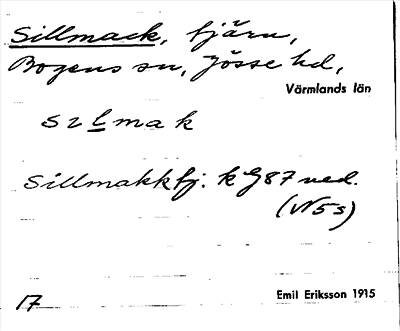 Sillmack, tjärn,
Bogens sn, Jösse hd,
Värmlands län
sılmak
Sillmakktj. k G87 ned.
(N5s)
17 Emil Eriksson 1915